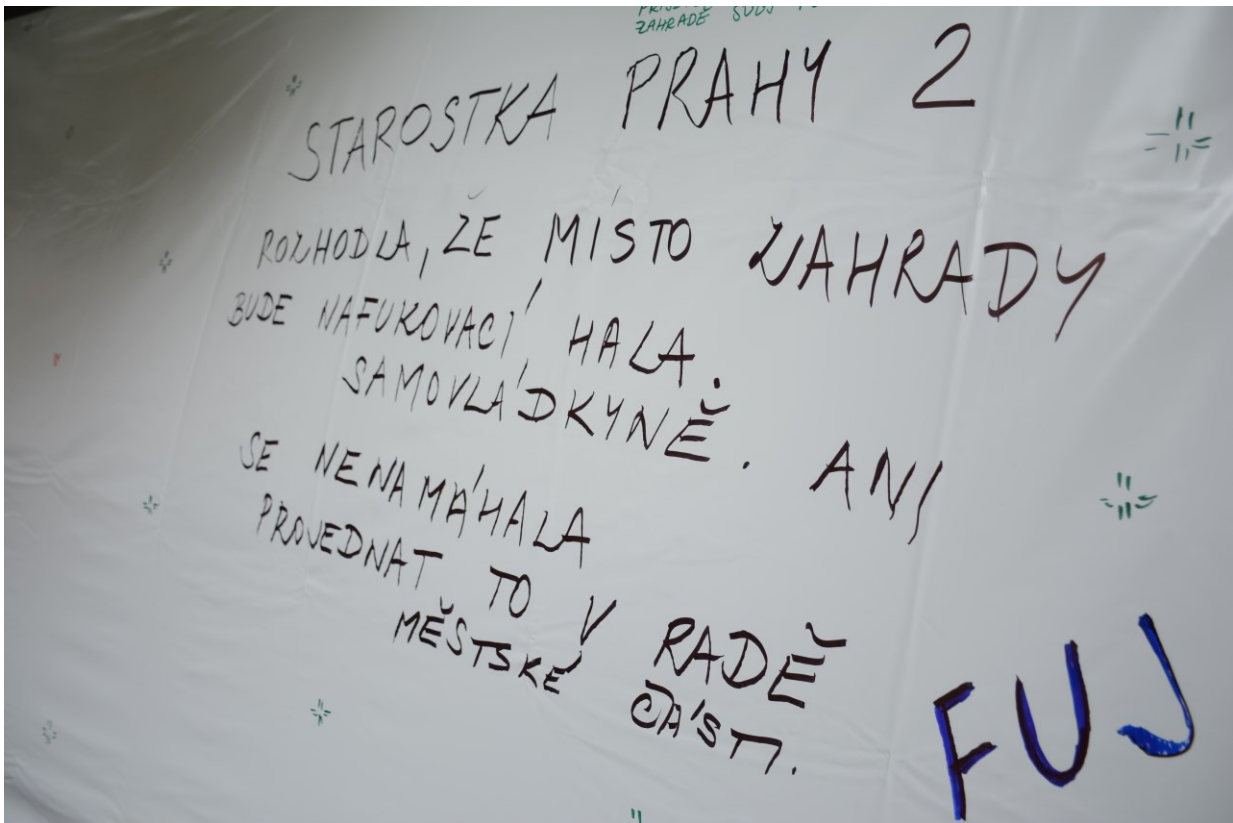 ZAHRADĚ
STAROSTKA PRAHY 2
ROZHODLA, ŽE MÍSTO ZAHRADY
BUDE NAFUKOVACÍ HALA.
SAMOVLÁDKYNĚ. ANI
SE NENAMÁHALA
PROJEDNAT TO V RADĚ
MĚSTSKÉ ČÁSTI.
FUJ